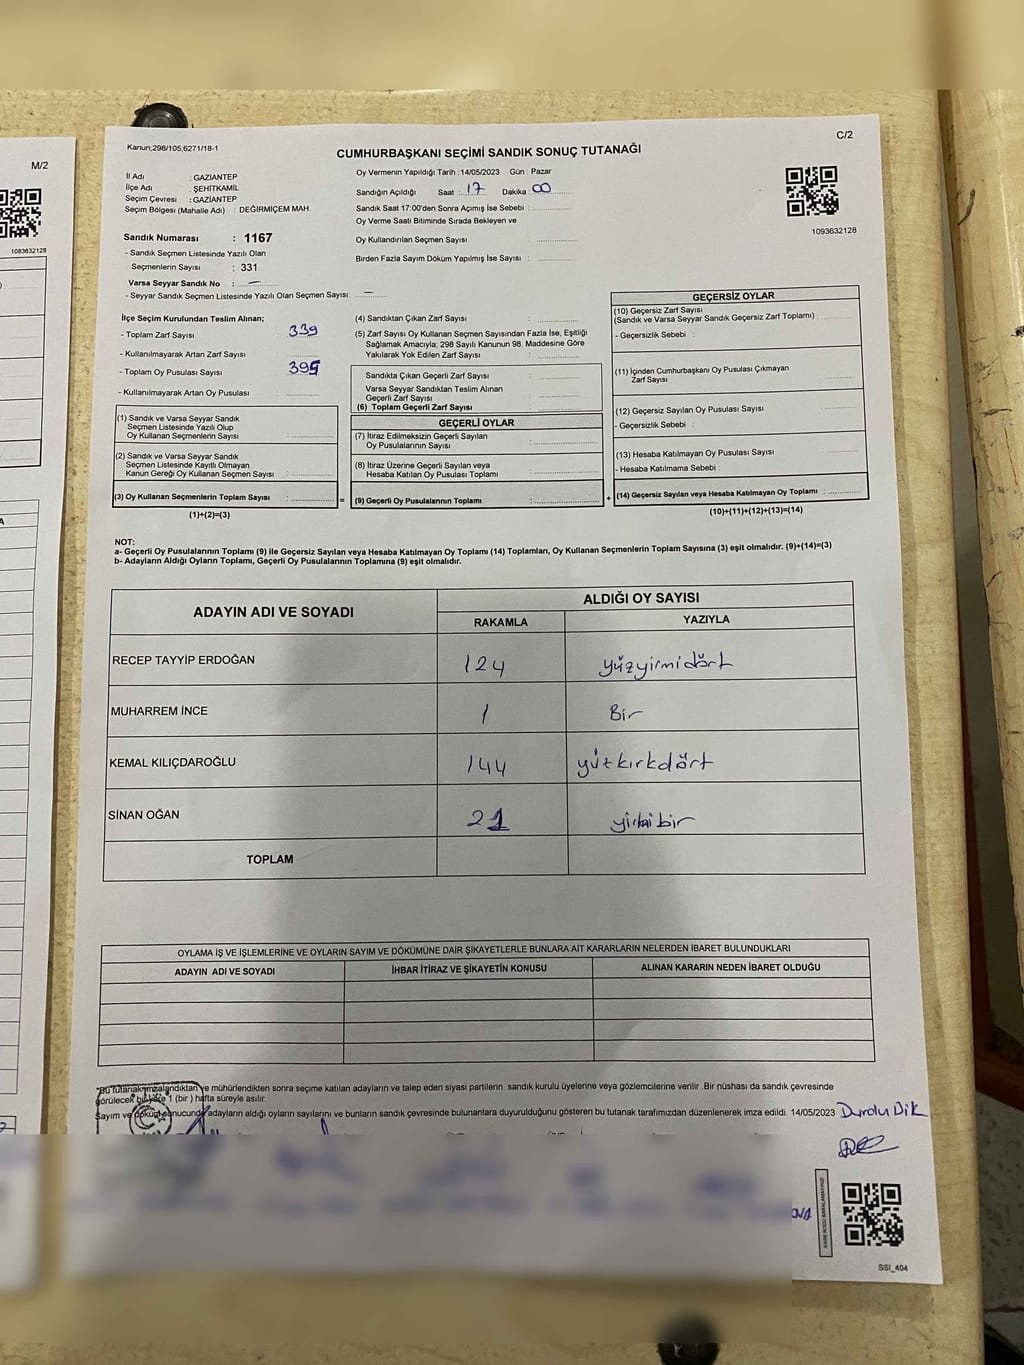 M/2
1083632128
Kanun;298/105,6271/18-1
C/2
CUMHURBAŞKANI SEÇİMİ SANDIK SONUÇ TUTANAĞI
İl Adı : GAZİANTEP
İlçe Adı : ŞEHİTKAMİL
Seçim Çevresi : GAZİANTEP
Seçim Bölgesi (Mahalle Adı) : DEĞİRMİÇEM MAH.
Oy Vermenin Yapıldığı Tarih : 14/05/2023 Gün : Pazar
Sandığın Açıldığı Saat : 17 Dakika : 00
Sandık Saat 17:00'den Sonra Açımış İse Sebebi :
Oy Verme Saati Bitiminde Sırada Bekleyen ve
Oy Kullandırılan Seçmen Sayısı
Birden Fazla Sayım Döküm Yapılmış İse Sayısı :
1093632128
Sandık Numarası : 1167
- Sandık Seçmen Listesinde Yazılı Olan
Seçmenlerin Sayısı : 331
Varsa Seyyar Sandık No : —
- Seyyar Sandık Seçmen Listesinde Yazılı Olan Seçmen Sayısı: —
İlçe Seçim Kurulundan Teslim Alınan;
- Toplam Zarf Sayısı 339
- Kullanılmayarak Artan Zarf Sayısı
- Toplam Oy Pusulası Sayısı 395
- Kullanılmayarak Artan Oy Pusulası :
(1) Sandık ve Varsa Seyyar Sandık
Seçmen Listesinde Yazılı Olup
Oy Kullanan Seçmenlerin Sayısı :
(2) Sandık ve Varsa Seyyar Sandık
Seçmen Listesinde Kayıtlı Olmayan
Kanun Gereği Oy Kullanan Seçmen Sayısı :
(3) Oy Kullanan Seçmenlerin Toplam Sayısı :
(1)+(2)=(3)
=
(4) Sandıktan Çıkan Zarf Sayısı :
(5) Zarf Sayısı Oy Kullanan Seçmen Sayısından Fazla İse, Eşitliği
Sağlamak Amacıyla; 298 Sayılı Kanunun 98. Maddesine Göre
Yakılarak Yok Edilen Zarf Sayısı :
Sandıkta Çıkan Geçerli Zarf Sayısı :
Varsa Seyyar Sandıktan Teslim Alınan
Geçerli Zarf Sayısı :
(6) Toplam Geçerli Zarf Sayısı :
GEÇERLİ OYLAR
(7) İtiraz Edilmeksizin Geçerli Sayılan
Oy Pusulalarının Sayısı :
(8) İtiraz Üzerine Geçerli Sayılan veya
Hesaba Katılan Oy Pusulası Toplamı :
(9) Geçerli Oy Pusulalarının Toplamı :
+
GEÇERSİZ OYLAR
(10) Geçersiz Zarf Sayısı
(Sandık ve Varsa Seyyar Sandık Geçersiz Zarf Toplamı) :
- Geçersizlik Sebebi :
(11) İçinden Cumhurbaşkanı Oy Pusulası Çıkmayan
Zarf Sayısı
(12) Geçersiz Sayılan Oy Pusulası Sayısı
- Geçersizlik Sebebi :
(13) Hesaba Katılmayan Oy Pusulası Sayısı
- Hesaba Katılmama Sebebi :
(14) Geçersiz Sayılan veya Hesaba Katılmayan Oy Toplamı :
(10)+(11)+(12)+(13)=(14)
NOT:
a- Geçerli Oy Pusulalarının Toplamı (9) ile Geçersiz Sayılan veya Hesaba Katılmayan Oy Toplamı (14) Toplamları, Oy Kullanan Seçmenlerin Toplam Sayısına (3) eşit olmalıdır. (9)+(14)=(3)
b- Adayların Aldığı Oyların Toplamı, Geçerli Oy Pusulalarının Toplamına (9) eşit olmalıdır.
ADAYIN ADI VE SOYADI
ALDIĞI OY SAYISI
RAKAMLA YAZIYLA
RECEP TAYYİP ERDOĞAN 124 yüzyirmidört
MUHARREM İNCE 1 Bir
KEMAL KILIÇDAROĞLU 144 yüzkırkdört
SİNAN OĞAN 21 yirmibir
TOPLAM
OYLAMA İŞ VE İŞLEMLERİNE VE OYLARIN SAYIM VE DÖKÜMÜNE DAİR ŞİKAYETLERLE BUNLARA AİT KARARLARIN NELERDEN İBARET BULUNDUKLARI
ADAYIN ADI VE SOYADI İHBAR İTİRAZ VE ŞİKAYETİN KONUSU ALINAN KARARIN NEDEN İBARET OLDUĞU
"Bu tutanak imzalandıktan ve mühürlendikten sonra seçime katılan adayların ve talep eden siyasi partilerin sandık kurulu üyelerine veya gözlemcilerine verilir .Bir nüshası da sandık çevresinde
görülecek bir yere 1 (bir ) hafta süreyle asılır.
Sayım ve döküm sonucunda adayların aldığı oyların sayılarını ve bunların sandık çevresinde bulunanlara duyurulduğunu gösteren bu tutanak tarafımızdan düzenlenerek imza edildi. 14/05/2023 Durdu Dik
SSI_404